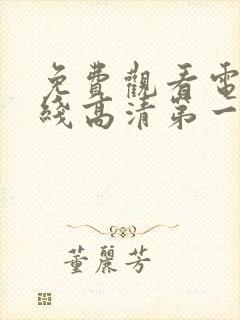 免費觀看電
綫高清第一
董麗芳